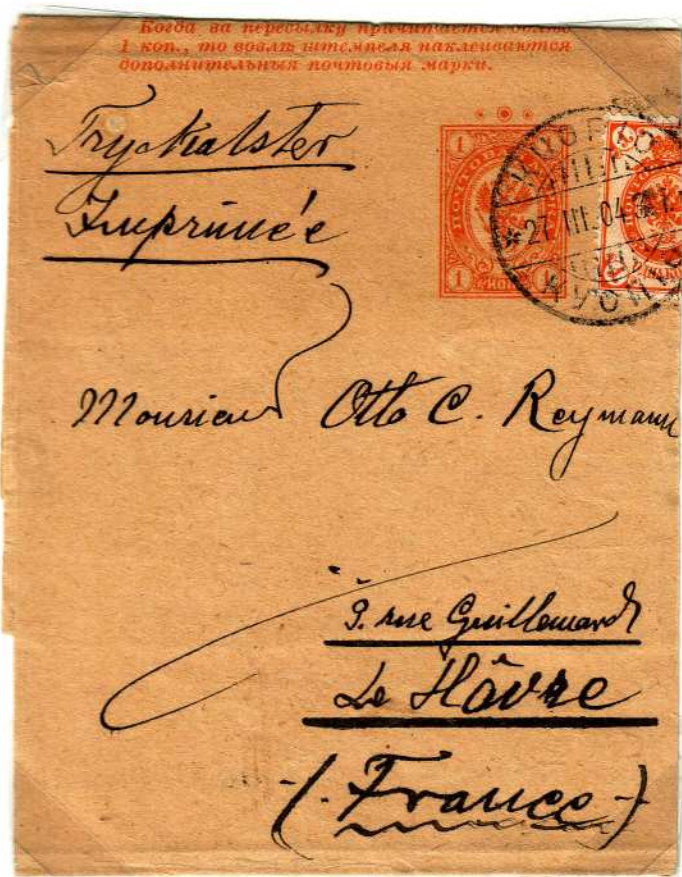 Когда за пересылку причитается более
1 коп., то возлѣ штемпеля наклеиваются
дополнительныя почтовыя марки.
Tryckalster
Imprimée
1 1
ПОЧТОВАЯ
1 1
KUOPIO
27.III.04
Monsieur Otto C. Reymann
9. rue Guillemard
Le Hâvre
(France)